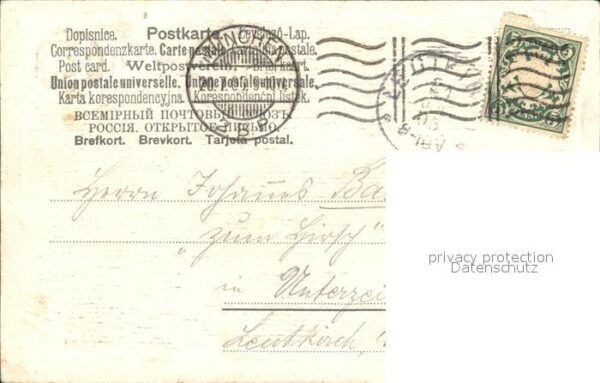 Dopisnice. Postkarte. Levelező-Lap.
Correspondenzkarte. Carte postale. Cartolina postale.
Post card. Weltpostverein. Briefkaart.
Union postale universelle. Unione postale universale.
Karta korespondencyjna. Korespondenční lístek.
ВСЕМІРНЫЙ ПОЧТОВЫЙ СОЮЗЪ.
РОССІЯ. ОТКРЫТОЕ ПИСЬМО.
Brefkort. Brevkort. Tarjeta postal.
Herrn Johannes
"zum Hirsch"
in Unterzei
Leutkirch,
privacy protection
Datenschutz